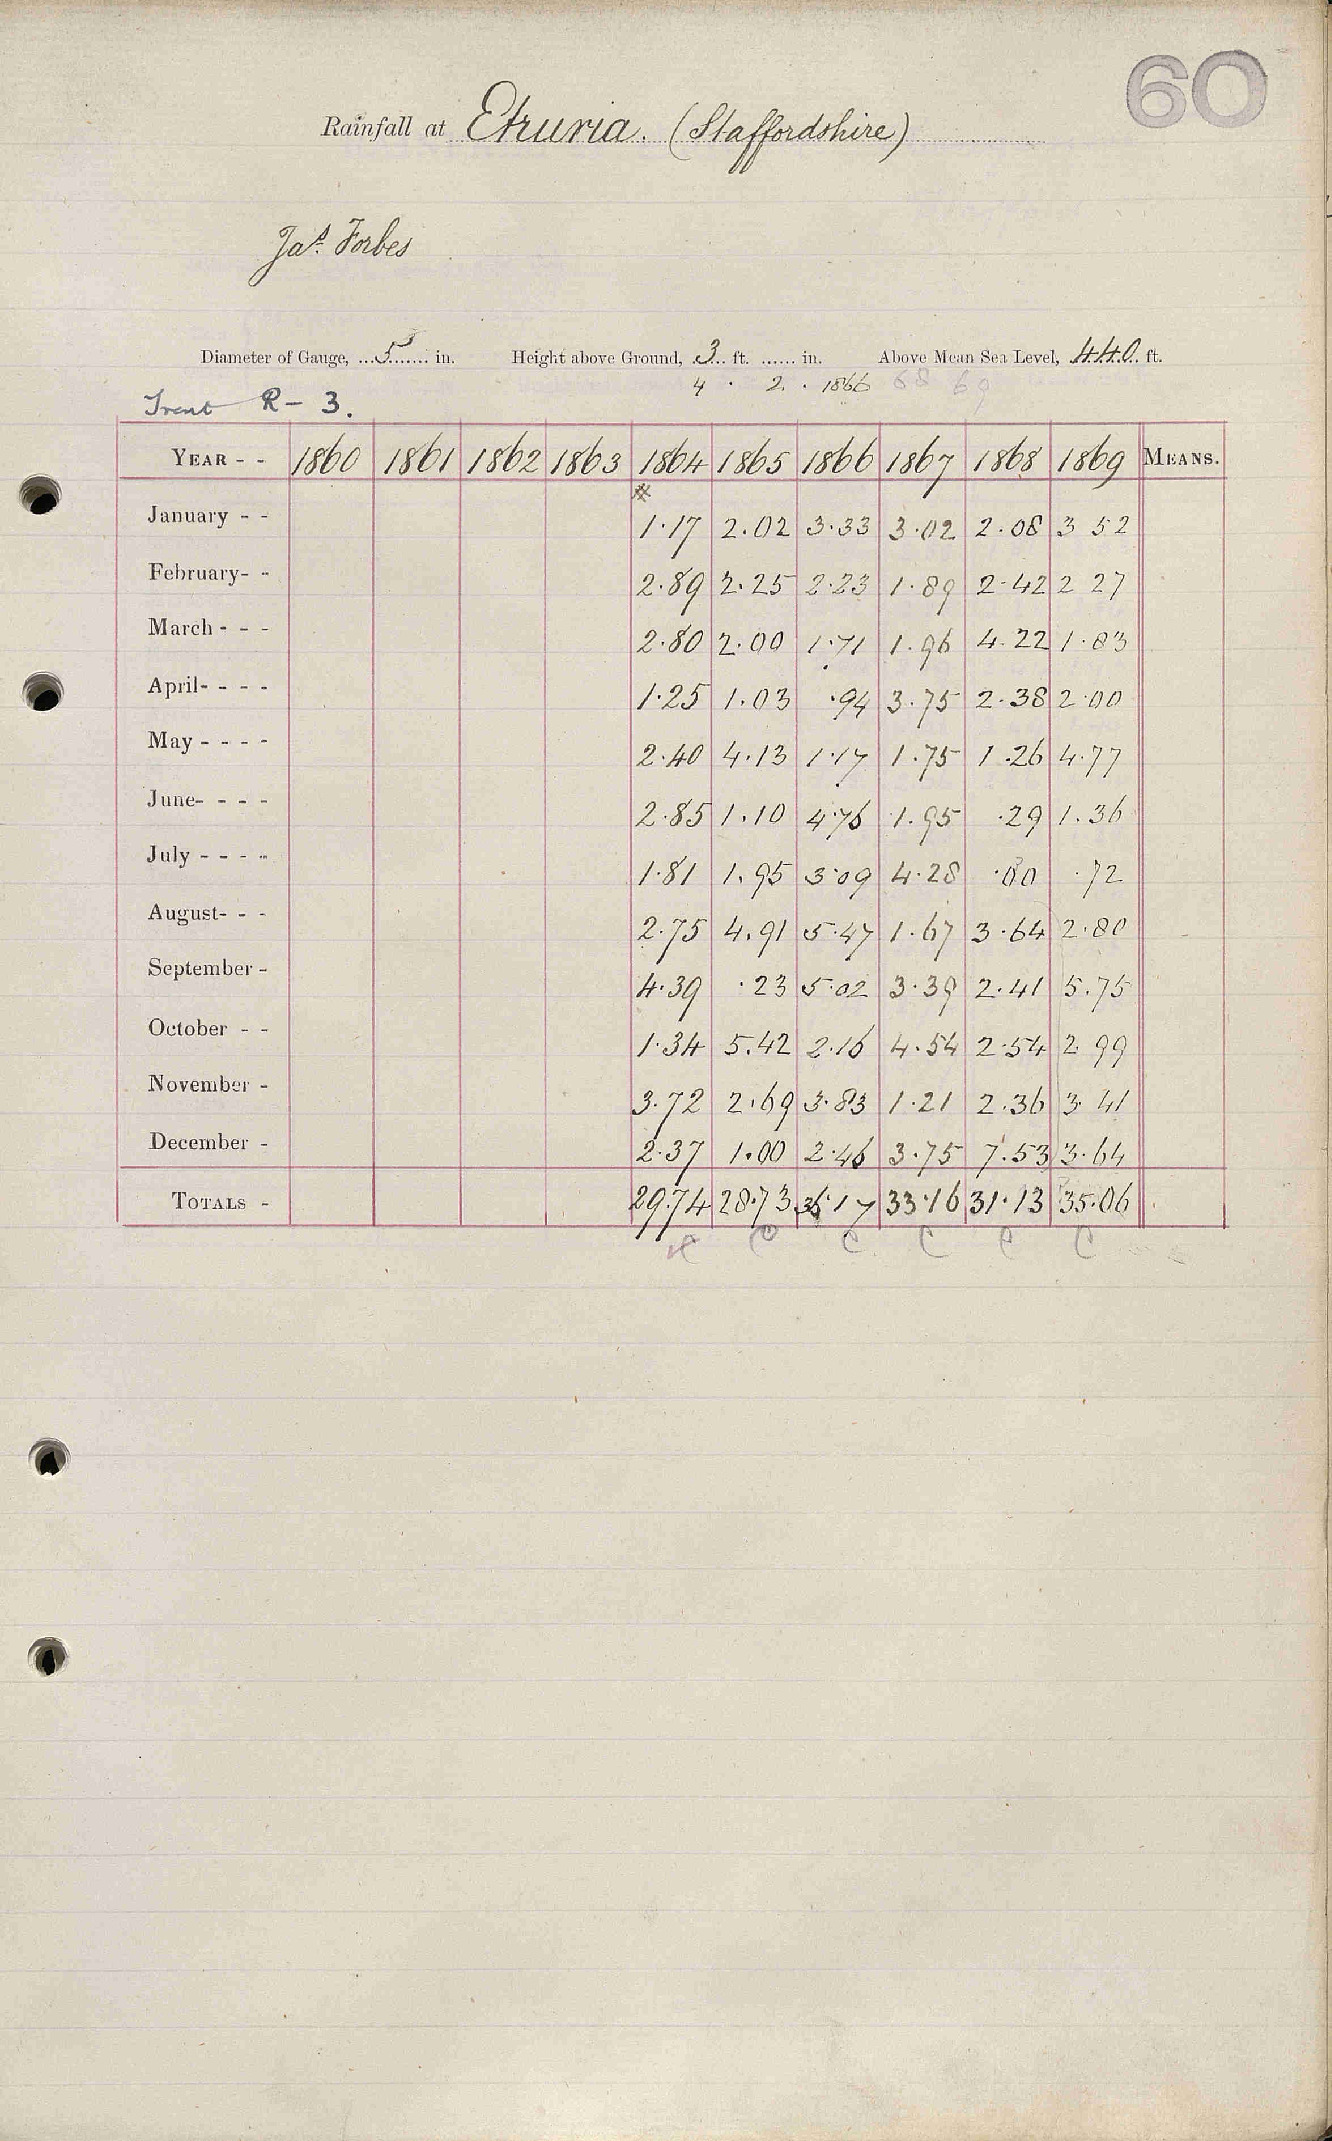 60
Rainfall at Etruria. (Staffordshire)
Jas. Forbes
Diameter of Gauge, 5 in. Height above Ground, 3 ft. in. Above Mean Sea Level, 440 ft.
4 . 2 . 1866 68 69
Trent R - 3.
YEAR - - 1860 1861 1862 1863 1864 1865 1866 1867 1868 1869 MEANS.
*
January - - 1.17 2.02 3.33 3.02 2.08 3 52
February- - 2.89 2.25 2.23 1.89 2.42 2 27
March - - - 2.80 2.00 1.71 1.96 4.22 1.83
April- - - - 1.25 1.03 .94 3.75 2.38 2.00
May - - - - 2.40 4.13 1.17 1.75 1.26 4.77
June- - - - 2.85 1.10 4.76 1.95 .29 1.36
July - - - - 1.81 1.95 3.09 4.28 .00 .72
August- - - 2.75 4.91 5.47 1.67 3.64 2.80
September - 4.39 .23 5.02 3.39 2.41 5.75
October - - 1.34 5.42 2.16 4.54 2.54 2 99
November - 3.72 2.69 3.83 1.21 2.36 3 41
December - 2.37 1.00 2.46 3.75 7.53 3.64
TOTALS - 29.74 28.73 36.17 33.16 31.13 35.06
C C C C C C